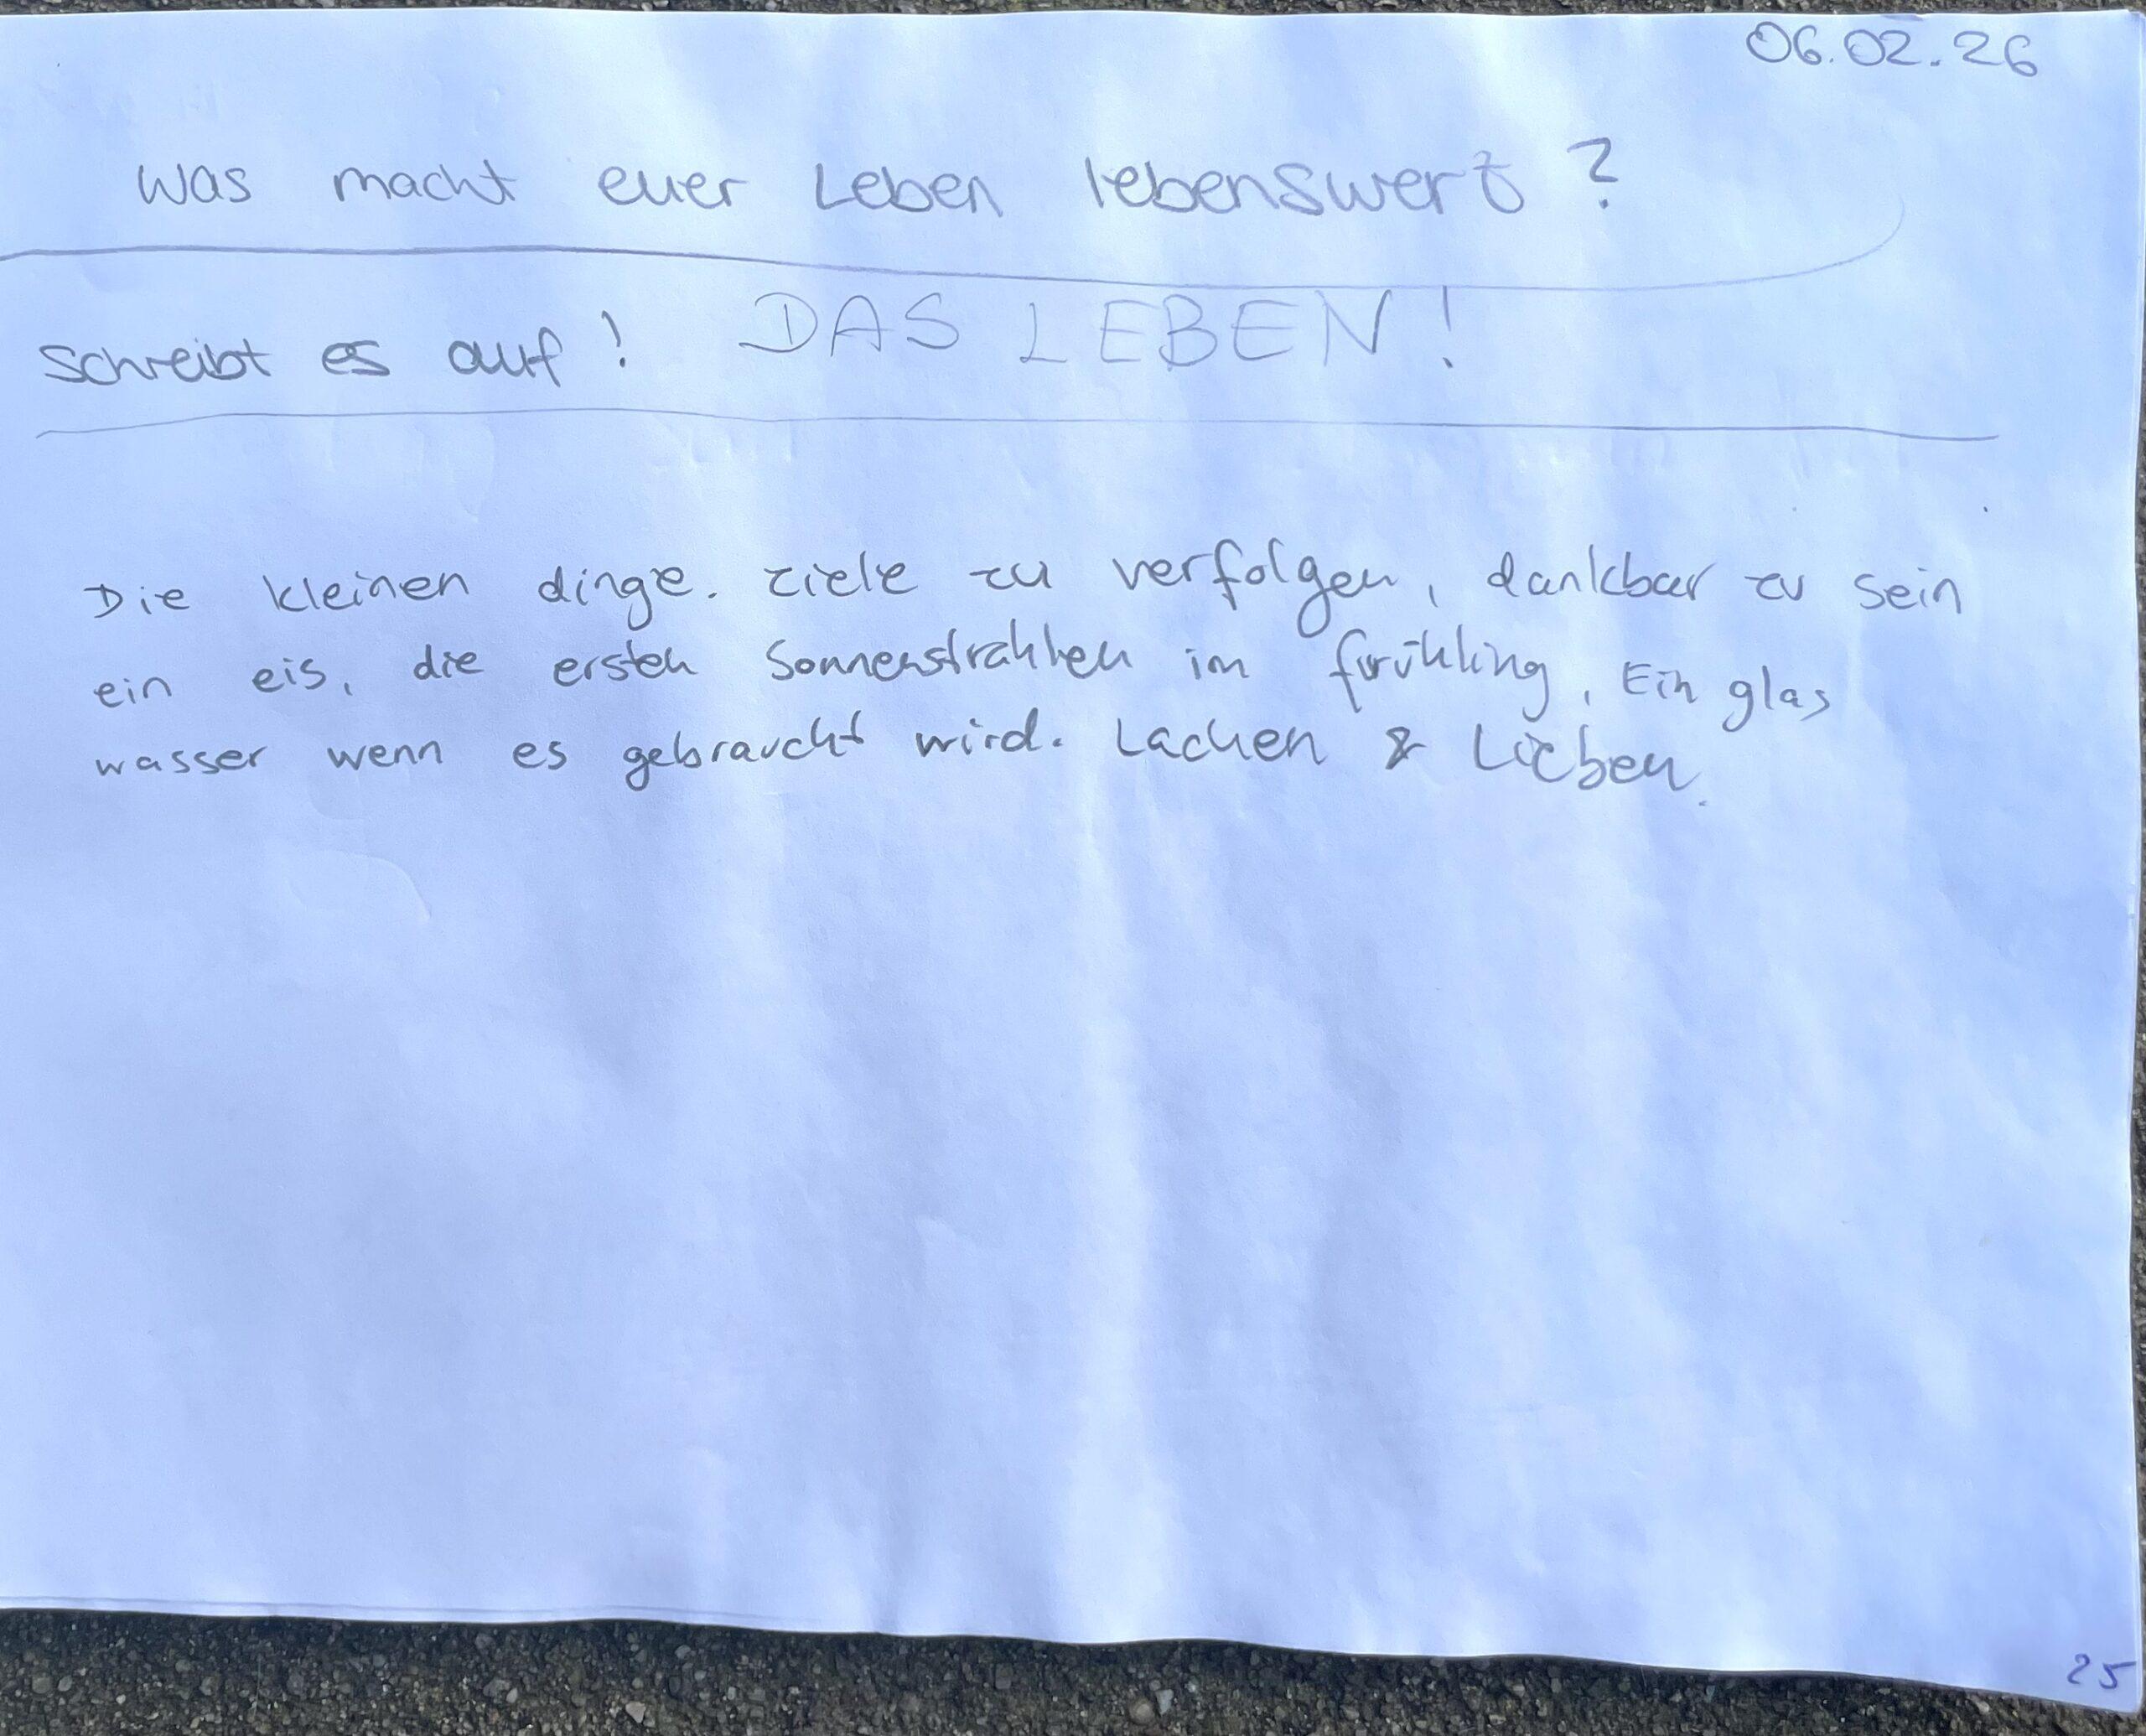 06.02.26
Was macht euer Leben lebenswert?
schreibt es auf! DAS LEBEN!
Die kleinen dinge. ziele zu verfolgen, dankbar zu sein
ein eis, die ersten Sonnenstrahlen im frühling, Ein glas
wasser wenn es gebraucht wird. Lachen & Lieben.
25